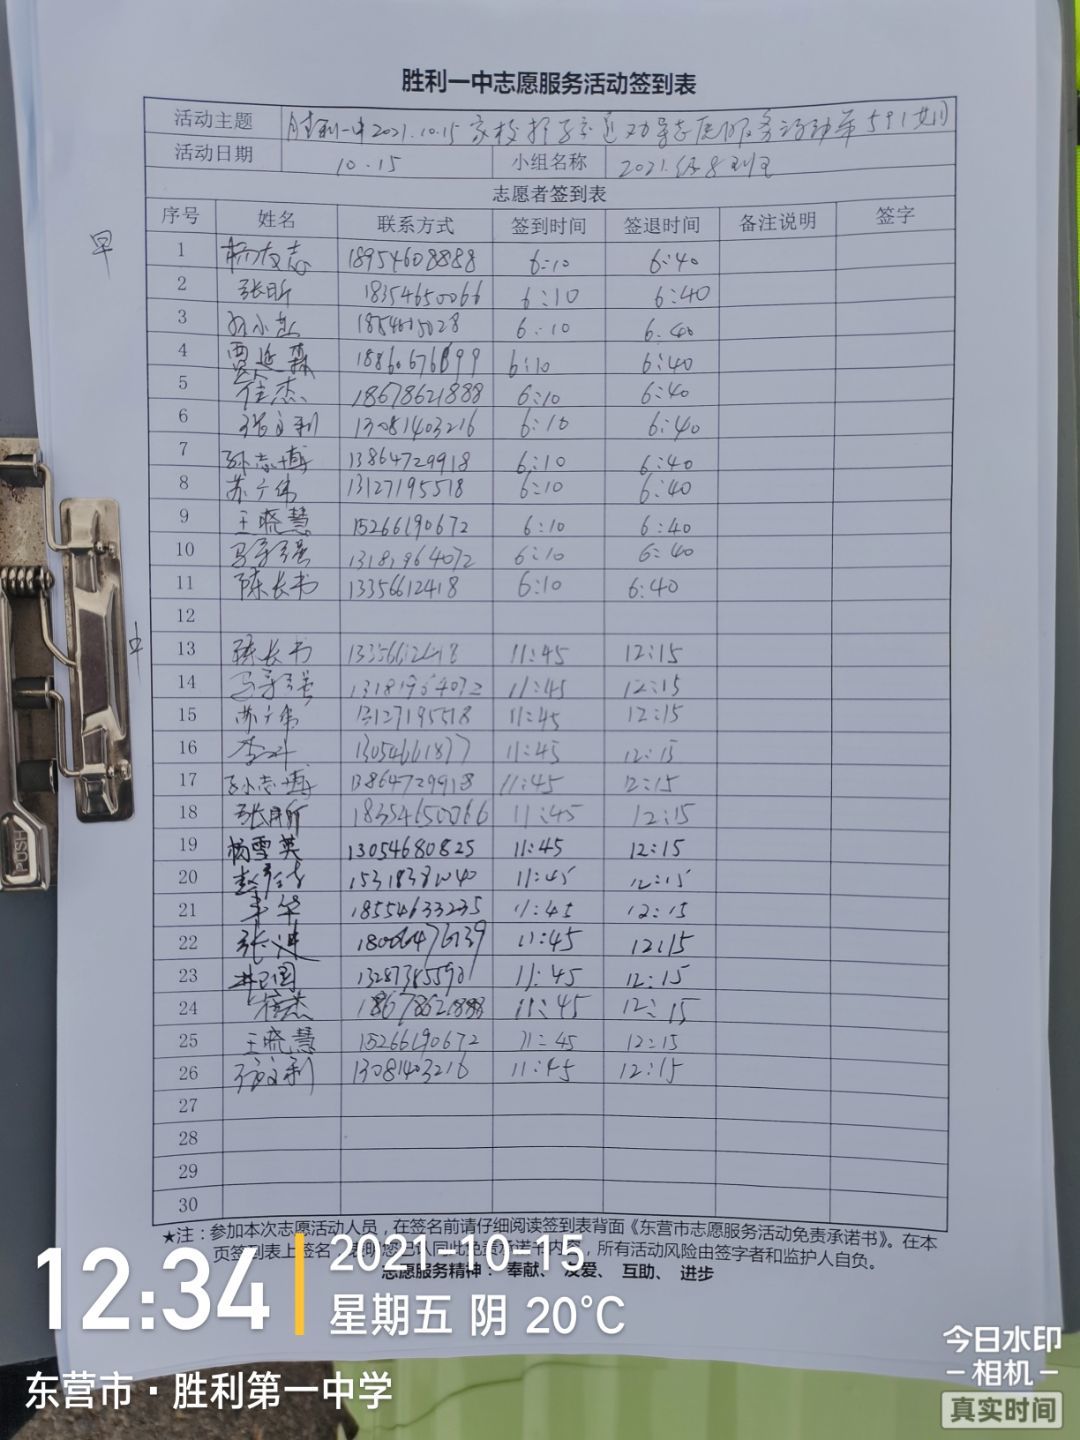 胜利一中志愿服务活动签到表
活动主题 胜利一中2021.10.15家校护学交通劝导志愿服务活动第591期
活动日期 10.15 小组名称 2021级8班
志愿者签到表
序号 姓名 联系方式 签到时间 签退时间 备注说明 签字
早
1 杨友志 18954608888 6:10 6:40
2 张昕 18354650066 6:10 6:40
3 6:10 6:40
4 贾延森 6:10 6:40
5 崔杰 18678621888 6:10 6:40
6 张文利 13081403216 6:10 6:40
7 孙志博 13864729918 6:10 6:40
8 苏广伟 13127195518 6:10 6:40
9 王晓慧 15266190672 6:10 6:40
10 13181964072 6:10 6:40
11 陈长书 13356612418 6:10 6:40
12
中
13 陈长书 13356612418 11:45 12:15
14 13181964072 11:45 12:15
15 苏广伟 13127195518 11:45 12:15
16 13054661877 11:45 12:15
17 孙志博 13864729918 11:45 12:15
18 张昕 18354650066 11:45 12:15
19 杨雪英 13054680825 11:45 12:15
20 11:45 12:15
21 18554633235 11:45 12:15
22 11:45 12:15
23 13287385590 11:45 12:15
24 崔杰 18678621888 11:45 12:15
25 王晓慧 15266190672 11:45 12:15
26 张文利 13081403216 11:45 12:15
27
28
29
30
★注：参加本次志愿活动人员，在签名前请仔细阅读签到表背面《东营市志愿服务活动免责承诺书》。在本
页签到表上签名，表明您已认同此免责承诺书内容，所有活动风险由签字者和监护人自负。
志愿服务精神：奉献、友爱、互助、进步
12:34
2021-10-15
星期五 阴 20°C
东营市·胜利第一中学
今日水印
-相机-
真实时间
PUSH